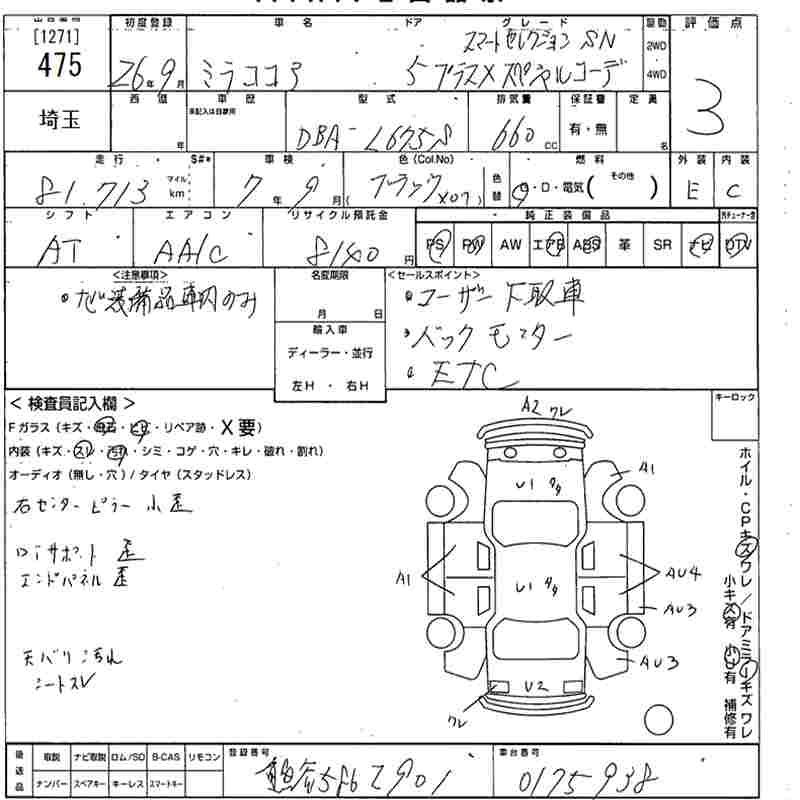 [1271]
475
埼玉
初度登録
26年9月
車名
ミラココア
ドア
5
グレード
スマートセレクション SN
プラスX スペシャルコーデ
駆動
2WD
4WD
評価点
3
西暦
年
車歴
未記入は自家用
型式
DBA-L675S
排気量
660cc
保証書
有・無
定員
名
走行
81,713
マイル
km
S#*
車検
7年9月
色(Col.No)
ブラック
(X07)
色替
燃料
G・D・電気(その他)
外装
E
内装
C
シフト
AT
エアコン
AA/C
リサイクル預託金
8140円
純正装備品
PS PW AW エアB ABS 革 SR ナビ DTV
<注意事項>
・ナビ装備品車内のみ
名変期限
月 日
輸入車
ディーラー・並行
左H・右H
<セールスポイント>
・ユーザー下取車
・バックモニター
・ETC
<検査員記入欄>
Fガラス(キズ・飛石・ヒビ・リペア跡・X要)
内装(キズ・スレ・汚れ・シミ・コゲ・穴・キレ・破れ・割れ)
オーディオ(無し・穴)/タイヤ(スタッドレス)
右センターピラー小歪
エンドパネル歪
天バリ汚れ
シートスレ
キーロック
A2 ワレ
A1
U1
A1
U1
AU4
AU3
AU3
U2
ワレ
ホイル・CPキズワレ/ドアミラーキズワレ
小キズ有 小U有 補修有
後送品
取説 ナビ取説 ロム/SD B-CAS リモコン
ナンバー スペアキー キーレス スマートキー
登録番号
熊谷586 Z901
車台番号
0175938